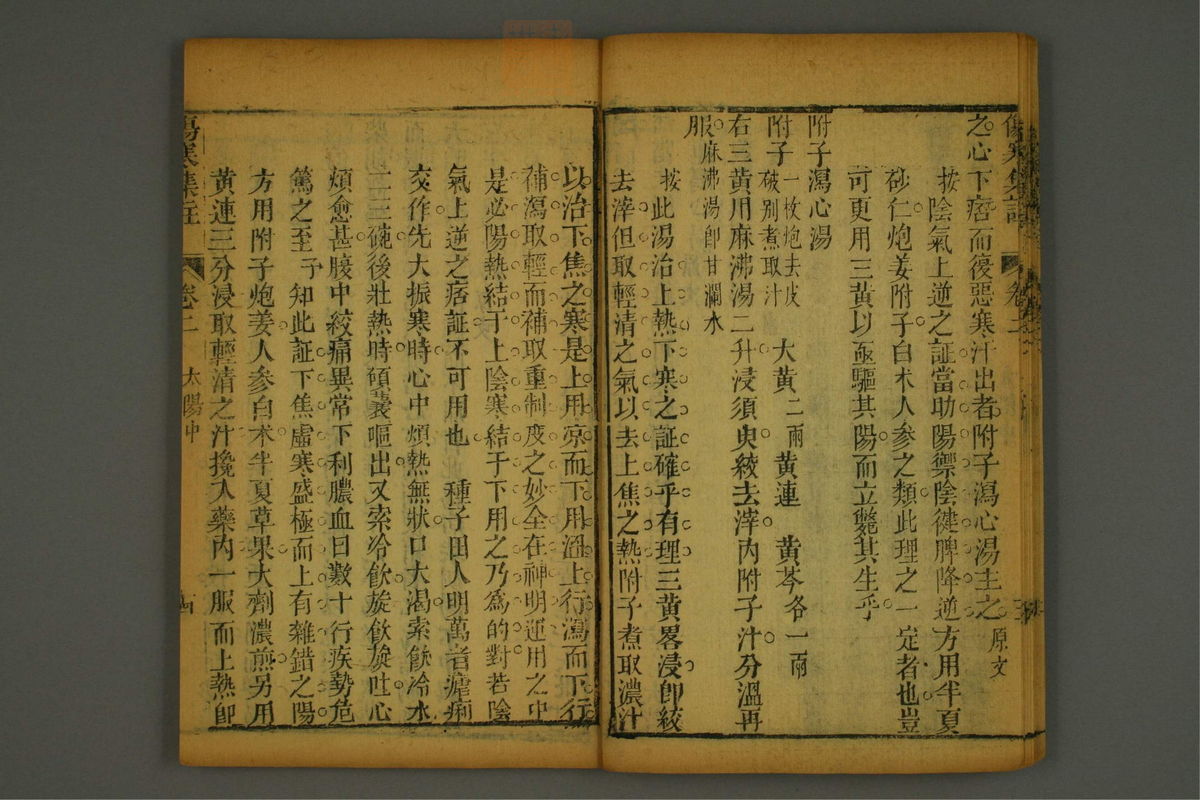 傷寒集註 卷二
之心下痞而復惡寒汁出者附子瀉心湯主之 原文
按陰氣上逆之証當助陽禦陰健脾降逆方用半夏
砂仁炮姜附子白朮人參之類此理之一定者也豈
可更用三黃以亟驅其陽而立斃其生乎
附子瀉心湯
附子 一枚炮去皮破別煮取汁 大黃 二兩 黃連 黃芩 各一兩
右三黃用麻沸湯二升浸須臾絞去滓內附子汁分溫再
服 麻沸湯卽甘瀾水
按此湯治上熱下寒之証確乎有理三黃畧浸卽絞
去滓但取輕清之氣以去上焦之熱附子煮取濃汁
以治下焦之寒是上用凉而下用溫上行瀉而下行
補瀉取輕而補取重制度之妙全在神明運用之中
是必陽熱結于上陰寒結于下用之乃為的對若陰
氣上逆之痞証不可用也 種子田人明萬者瘧痢
交作先大振寒時心中煩熱無狀口大渴索飲冷水
二三碗後壯熱時頃囊嘔出又索冷飲旋飲旋吐心
煩愈甚腹中絞痛異常下利膿血日數十行疾勢危
篤之至予知此証下焦虛寒盛極而上有雜錯之陽
方用附子炮姜人參白朮半夏草果大劑濃煎另用
黃連三分浸取輕清之汁攙入藥內一服而上熱卽
傷寒集註 卷二 太陽中